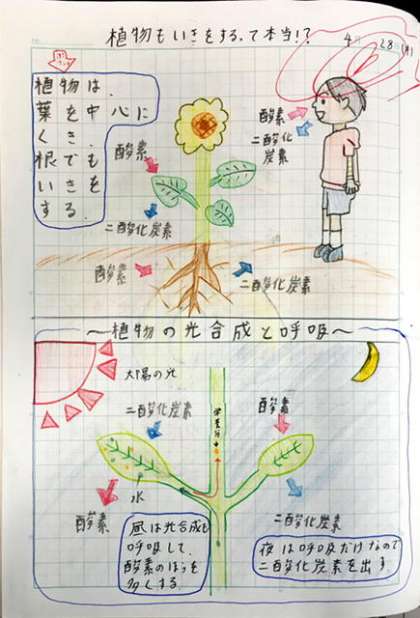 植物もいきをするって本当!?
4月28日(月)
植物は、
葉を中心に
くき、
根でも
いきを
する。
酸素
二酸化炭素
酸素
二酸化
炭素
酸素
二酸化炭素
〜植物の光合成と呼吸〜
太陽の光
二酸化炭素
酸素
水
養分
酸素
二酸化炭素
昼は光合成も
呼吸して、
酸素のほうを
多くする。
夜は呼吸だけなので
二酸化炭素を出す。